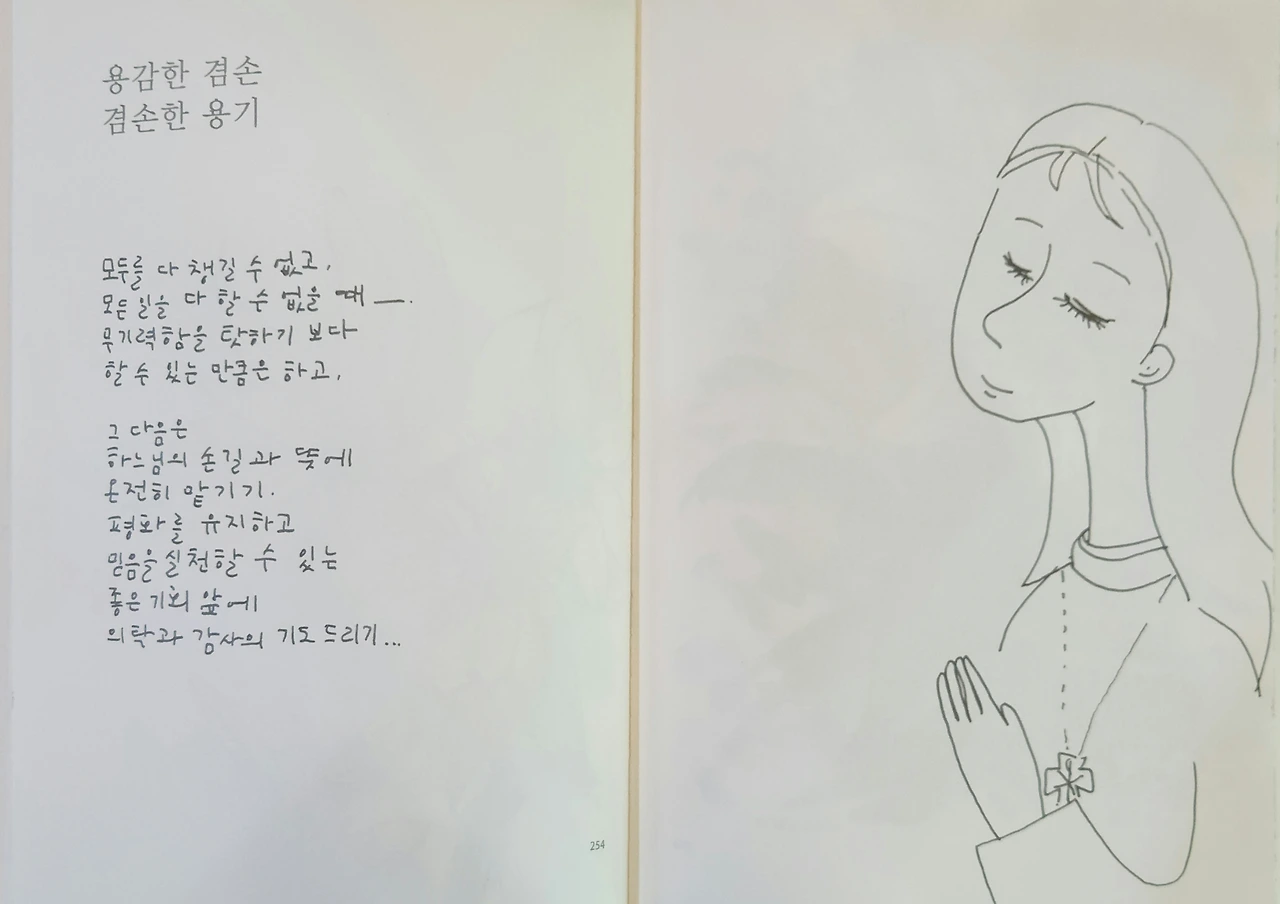 용감한 겸손
겸손한 용기
모두를 다 챙길 수 없고,
모든 일을 다 할 수 없을 때 —.
무기력함을 탓하기 보다
할 수 있는 만큼은 하고,
그 다음은
하느님의 손길과 뜻에
온전히 맡기기.
평화를 유지하고
믿음을 실천할 수 있는
좋은 기회 앞에
의탁과 감사의 기도 드리기...
254